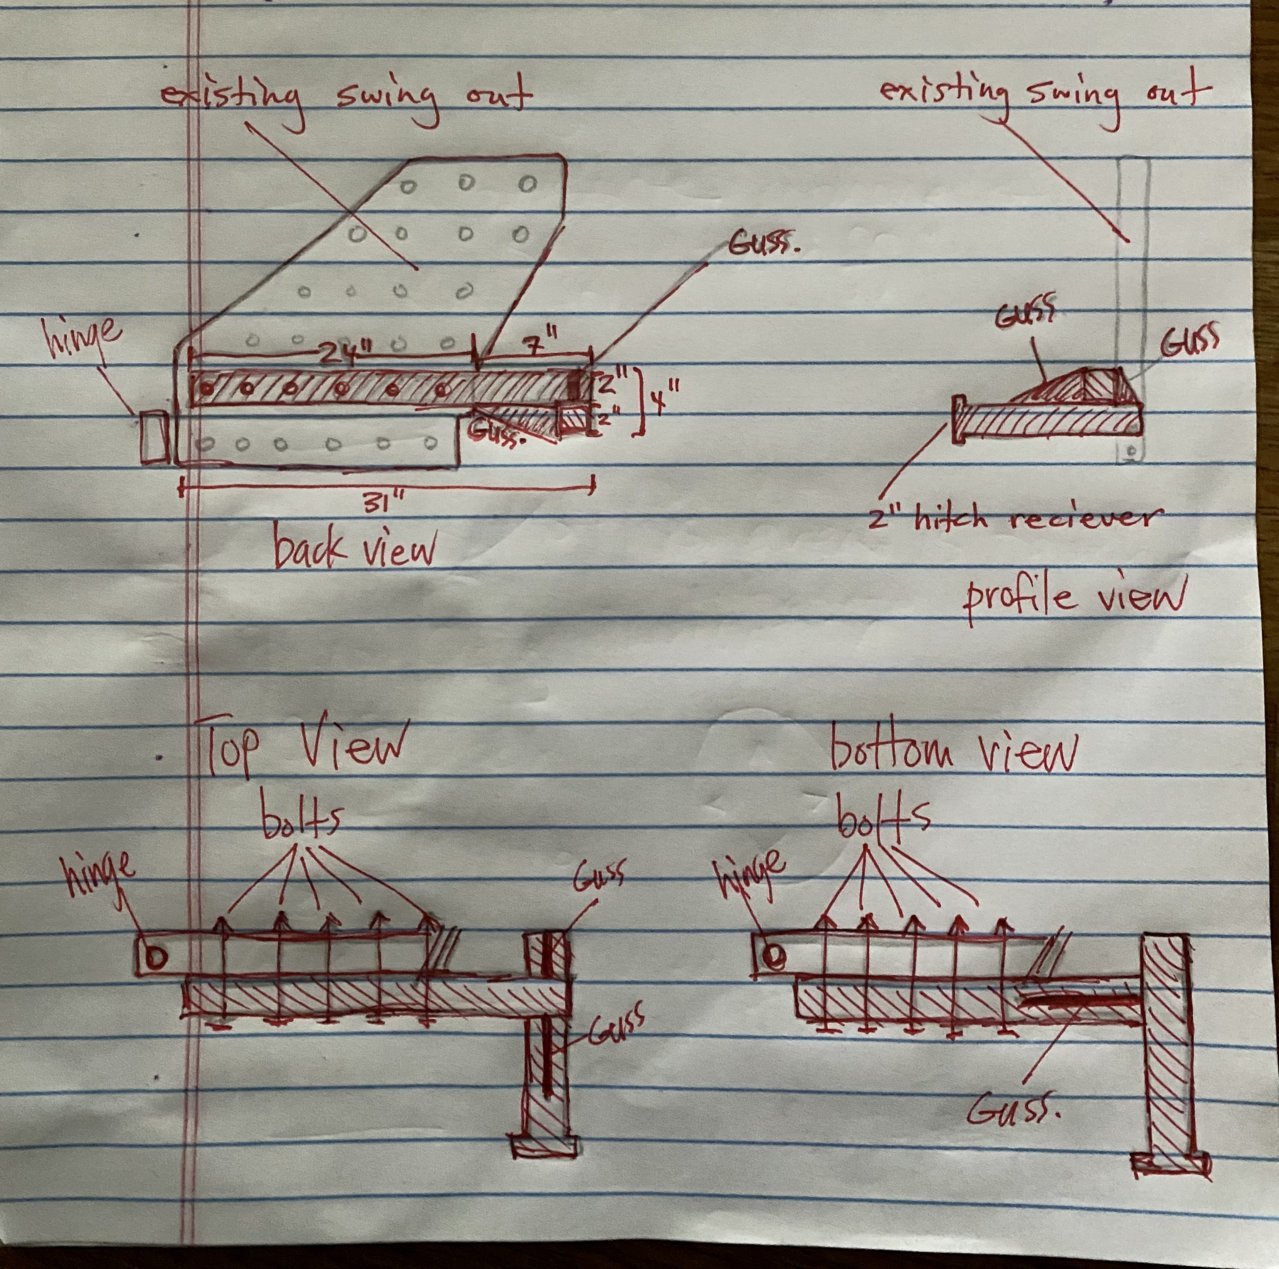 existing swing out
existing swing out
Guss.
hinge
24"
7"
Guss
Guss
2"
4"
2"
Guss.
31"
2" hitch reciever
back view
profile view
Top View
bottom view
bolts
bolts
hinge
Guss
hinge
Guss
Guss.